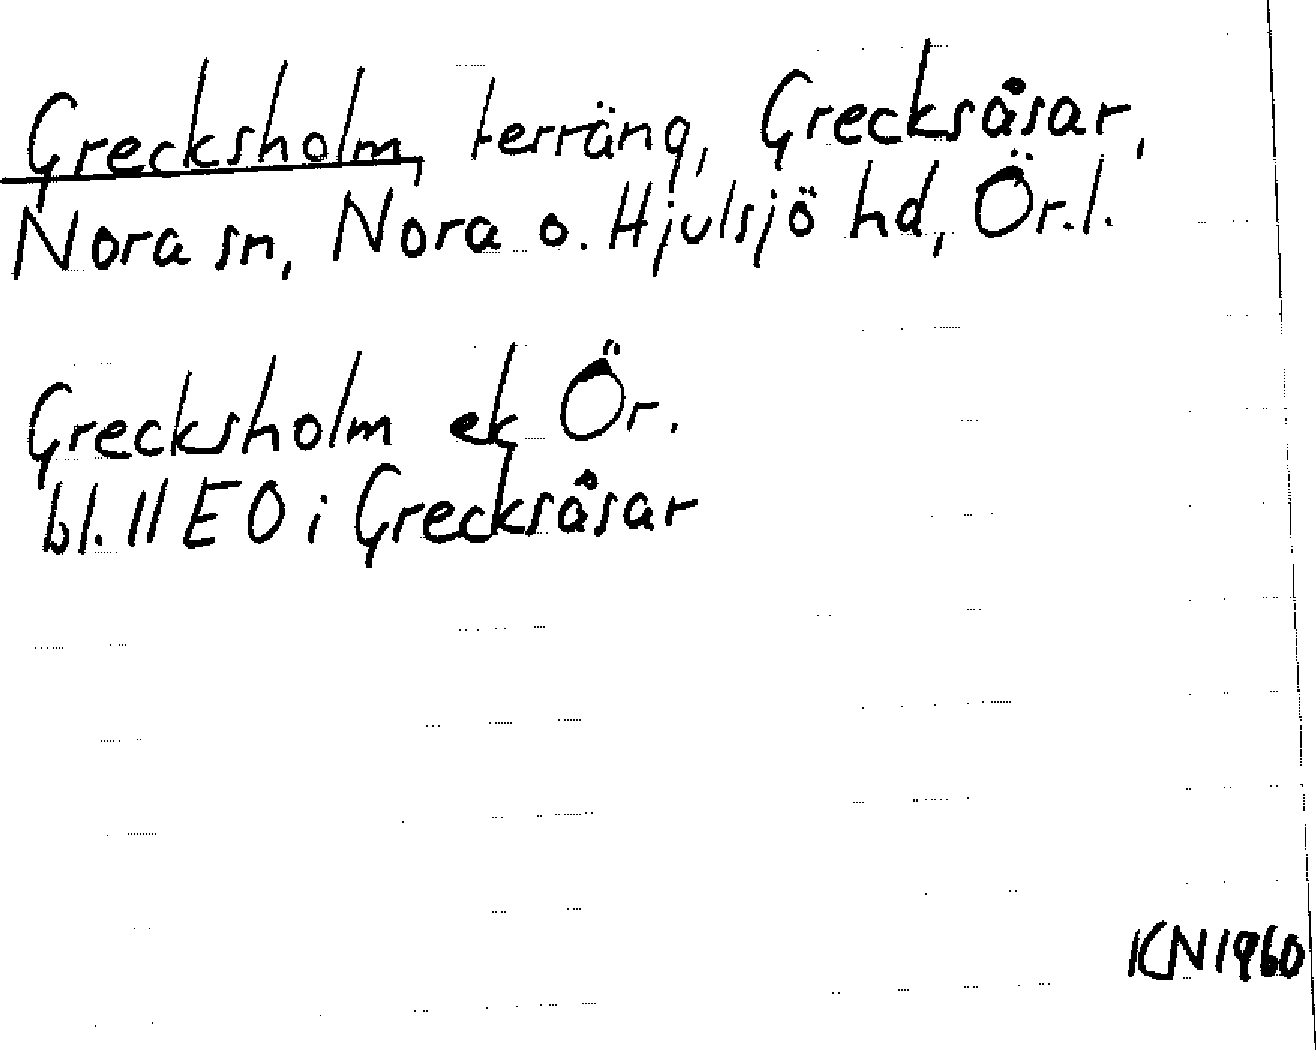 Grecksholm, terräng, Grecksåsar,
Nora sn, Nora o. Hjulsjö hd, Ör.l.
Grecksholm ek Ör.
bl. 11 E 0 i Grecksåsar
KN 1960